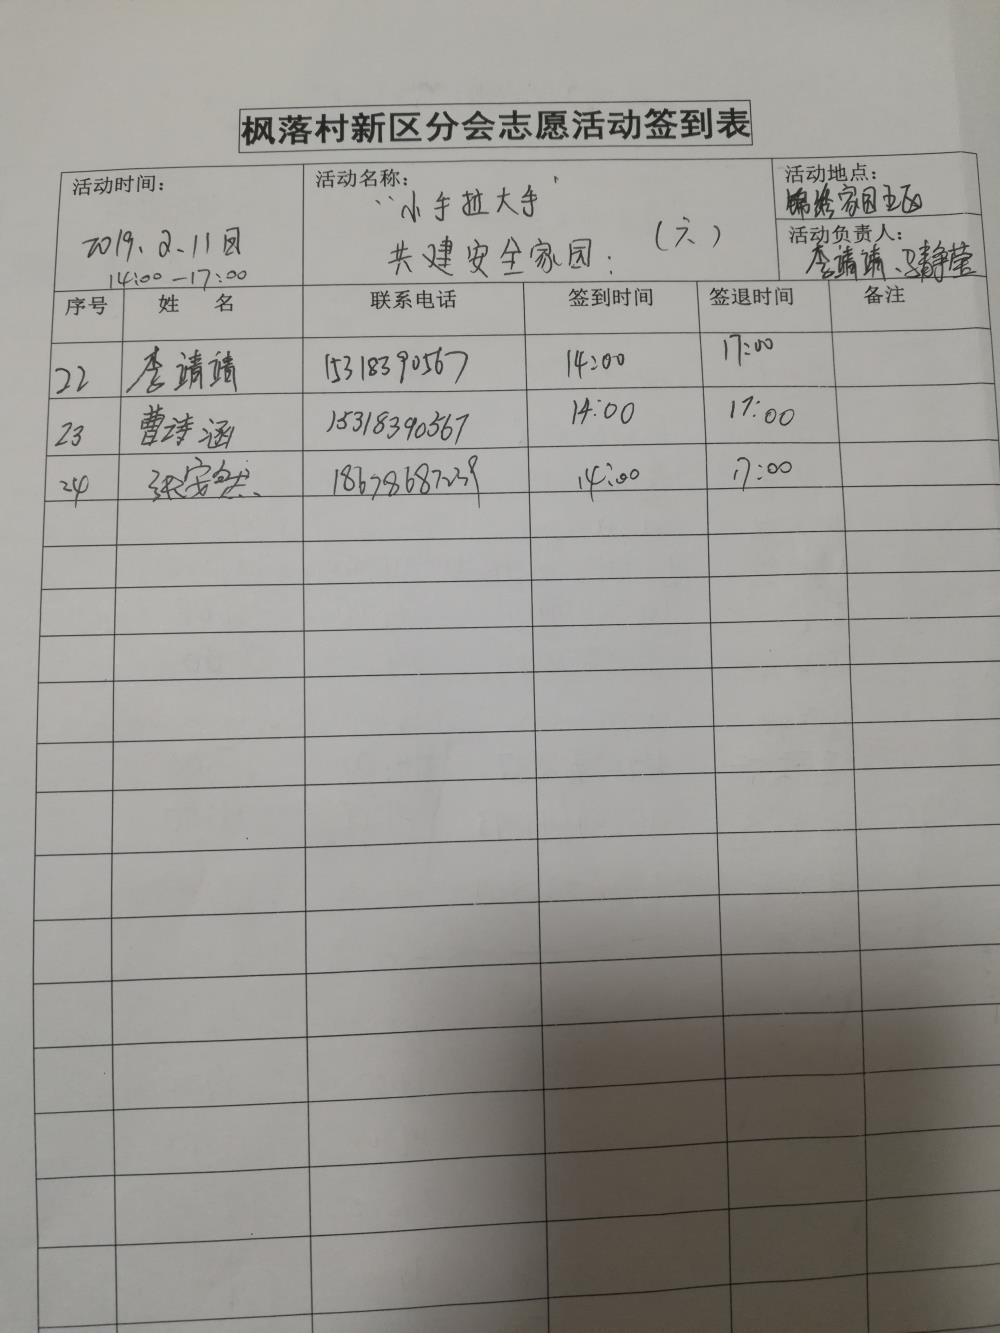 枫落村新区分会志愿活动签到表
活动时间：
2019.2.11日
14:00-17:00
活动名称：
“小手拉大手”
共建安全家园：（六）
活动地点：
家园
活动负责人：
李靖靖、静莹
序号 姓 名 联系电话 签到时间 签退时间 备注
22 李靖靖 15318390567 14:00 17:00
23 曹诗涵 15318390567 14:00 17:00
24 张安然 18678687239 14:00 17:00